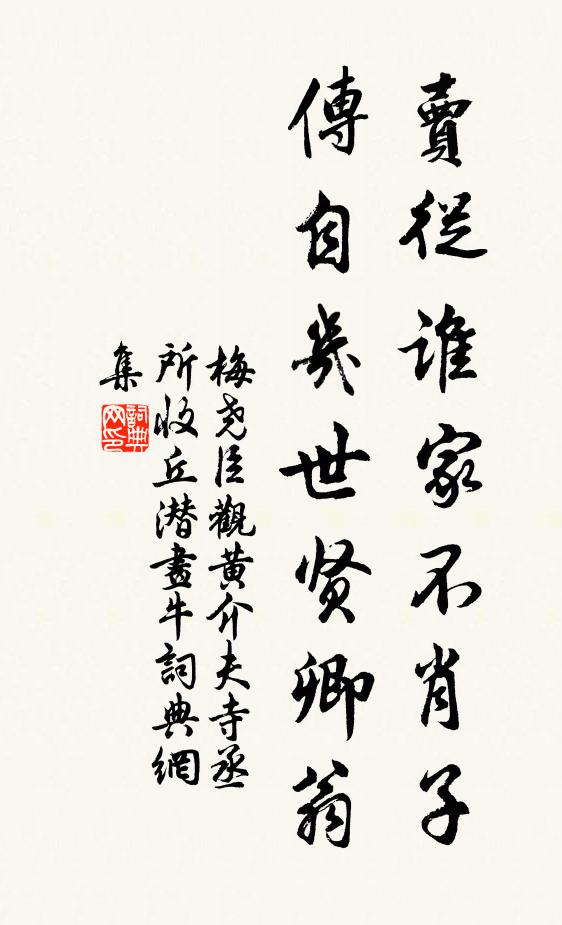 賣從誰家不肖子
傳自幾世贤卿翁
梅尧臣觀黄介夫寺丞
所收丘潜畫牛詞典網
集
詞典网印